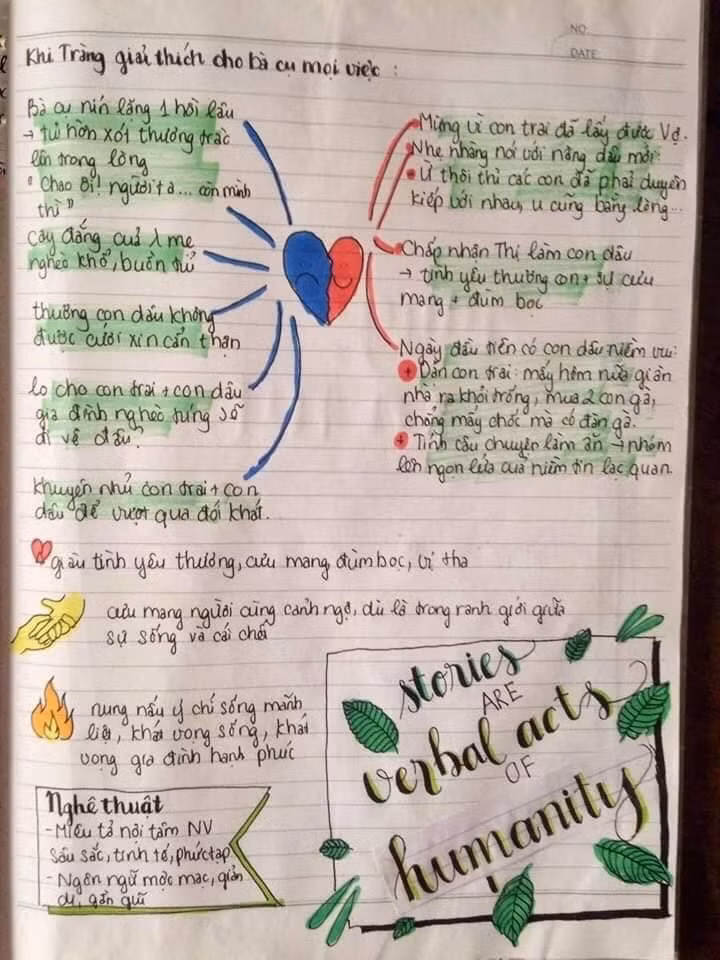 NO.
DATE
Khi Tràng giải thích cho bà cụ mọi việc :
Bà cụ nín lặng 1 hồi lâu
→ tủi hờn xót thương trào
lên trong lòng
" Chao ôi! người ta ... còn mình
thì "
cay đắng của 1 mẹ
nghèo khổ, buồn tủi
thương con dâu không
được cưới xin cẩn thận
lo cho con trai + con dâu
gia đình nghèo túng sẽ
đi về đâu?
khuyên nhủ con trai + con
dâu để vượt qua đói khát.
Mừng vì con trai đã lấy được Vợ.
Nhẹ nhàng nói với nàng dâu mới:
• Ừ thôi thì các con đã phải duyên
kiếp với nhau, u cũng bằng lòng...
Chấp nhận Thị làm con dâu
→ tình yêu thương con + sự cưu
mang + đùm bọc
Ngày đầu tiên có con dâu niềm vui:
+ Dặn con trai: mấy hôm nữa gì ăn
nhà ra khỏi trống, mua 2 con gà,
chẳng mấy chốc mà có đàn gà.
+ Tính câu chuyện làm ăn → nhóm
lên ngọn lửa của niềm tin lạc quan.
giàu tình yêu thương, cưu mang, đùm bọc, vị tha
cưu mang người cùng cảnh ngộ, dù là trong ranh giới giữa
sự sống và cái chết
nung nấu ý chí sống mãnh
liệt, khát vọng sống, khát
vọng gia đình hạnh phúc
Nghệ thuật
- Miêu tả nội tâm NV
sâu sắc, tinh tế, phức tạp
- Ngôn ngữ mộc mạc, giản
dị, gần gũi
stories
ARE
verbal acts
OF
humanity